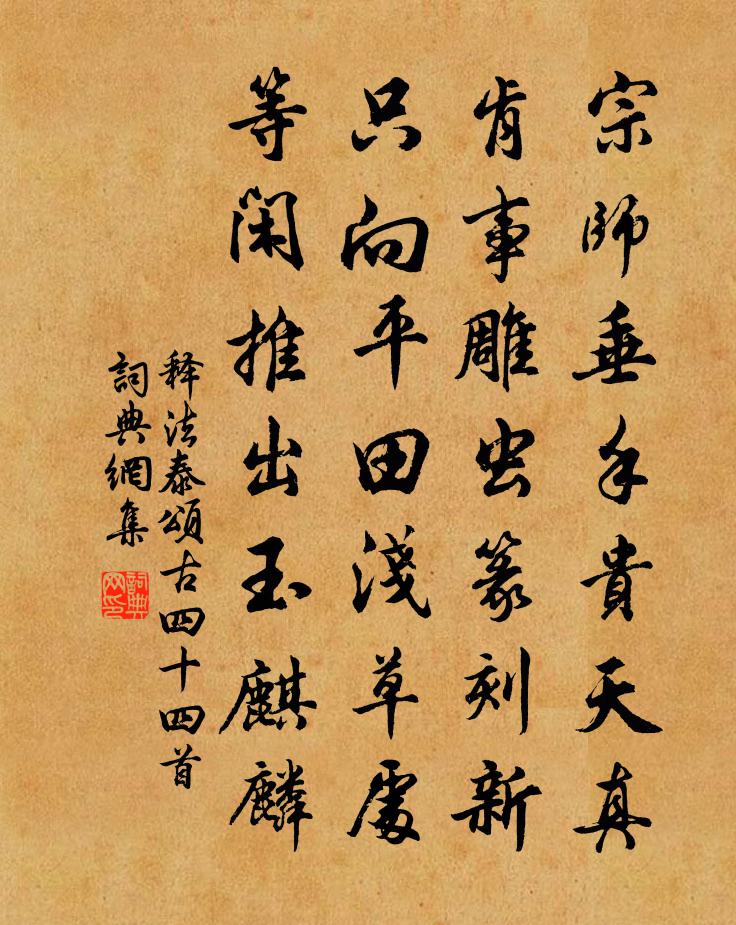 宗師垂手貴天真
肯事雕虫篆刻新
只向平田淺草處
等閑推出玉麒麟
释法泰頌古四十四首
詞典網集
詞典网印